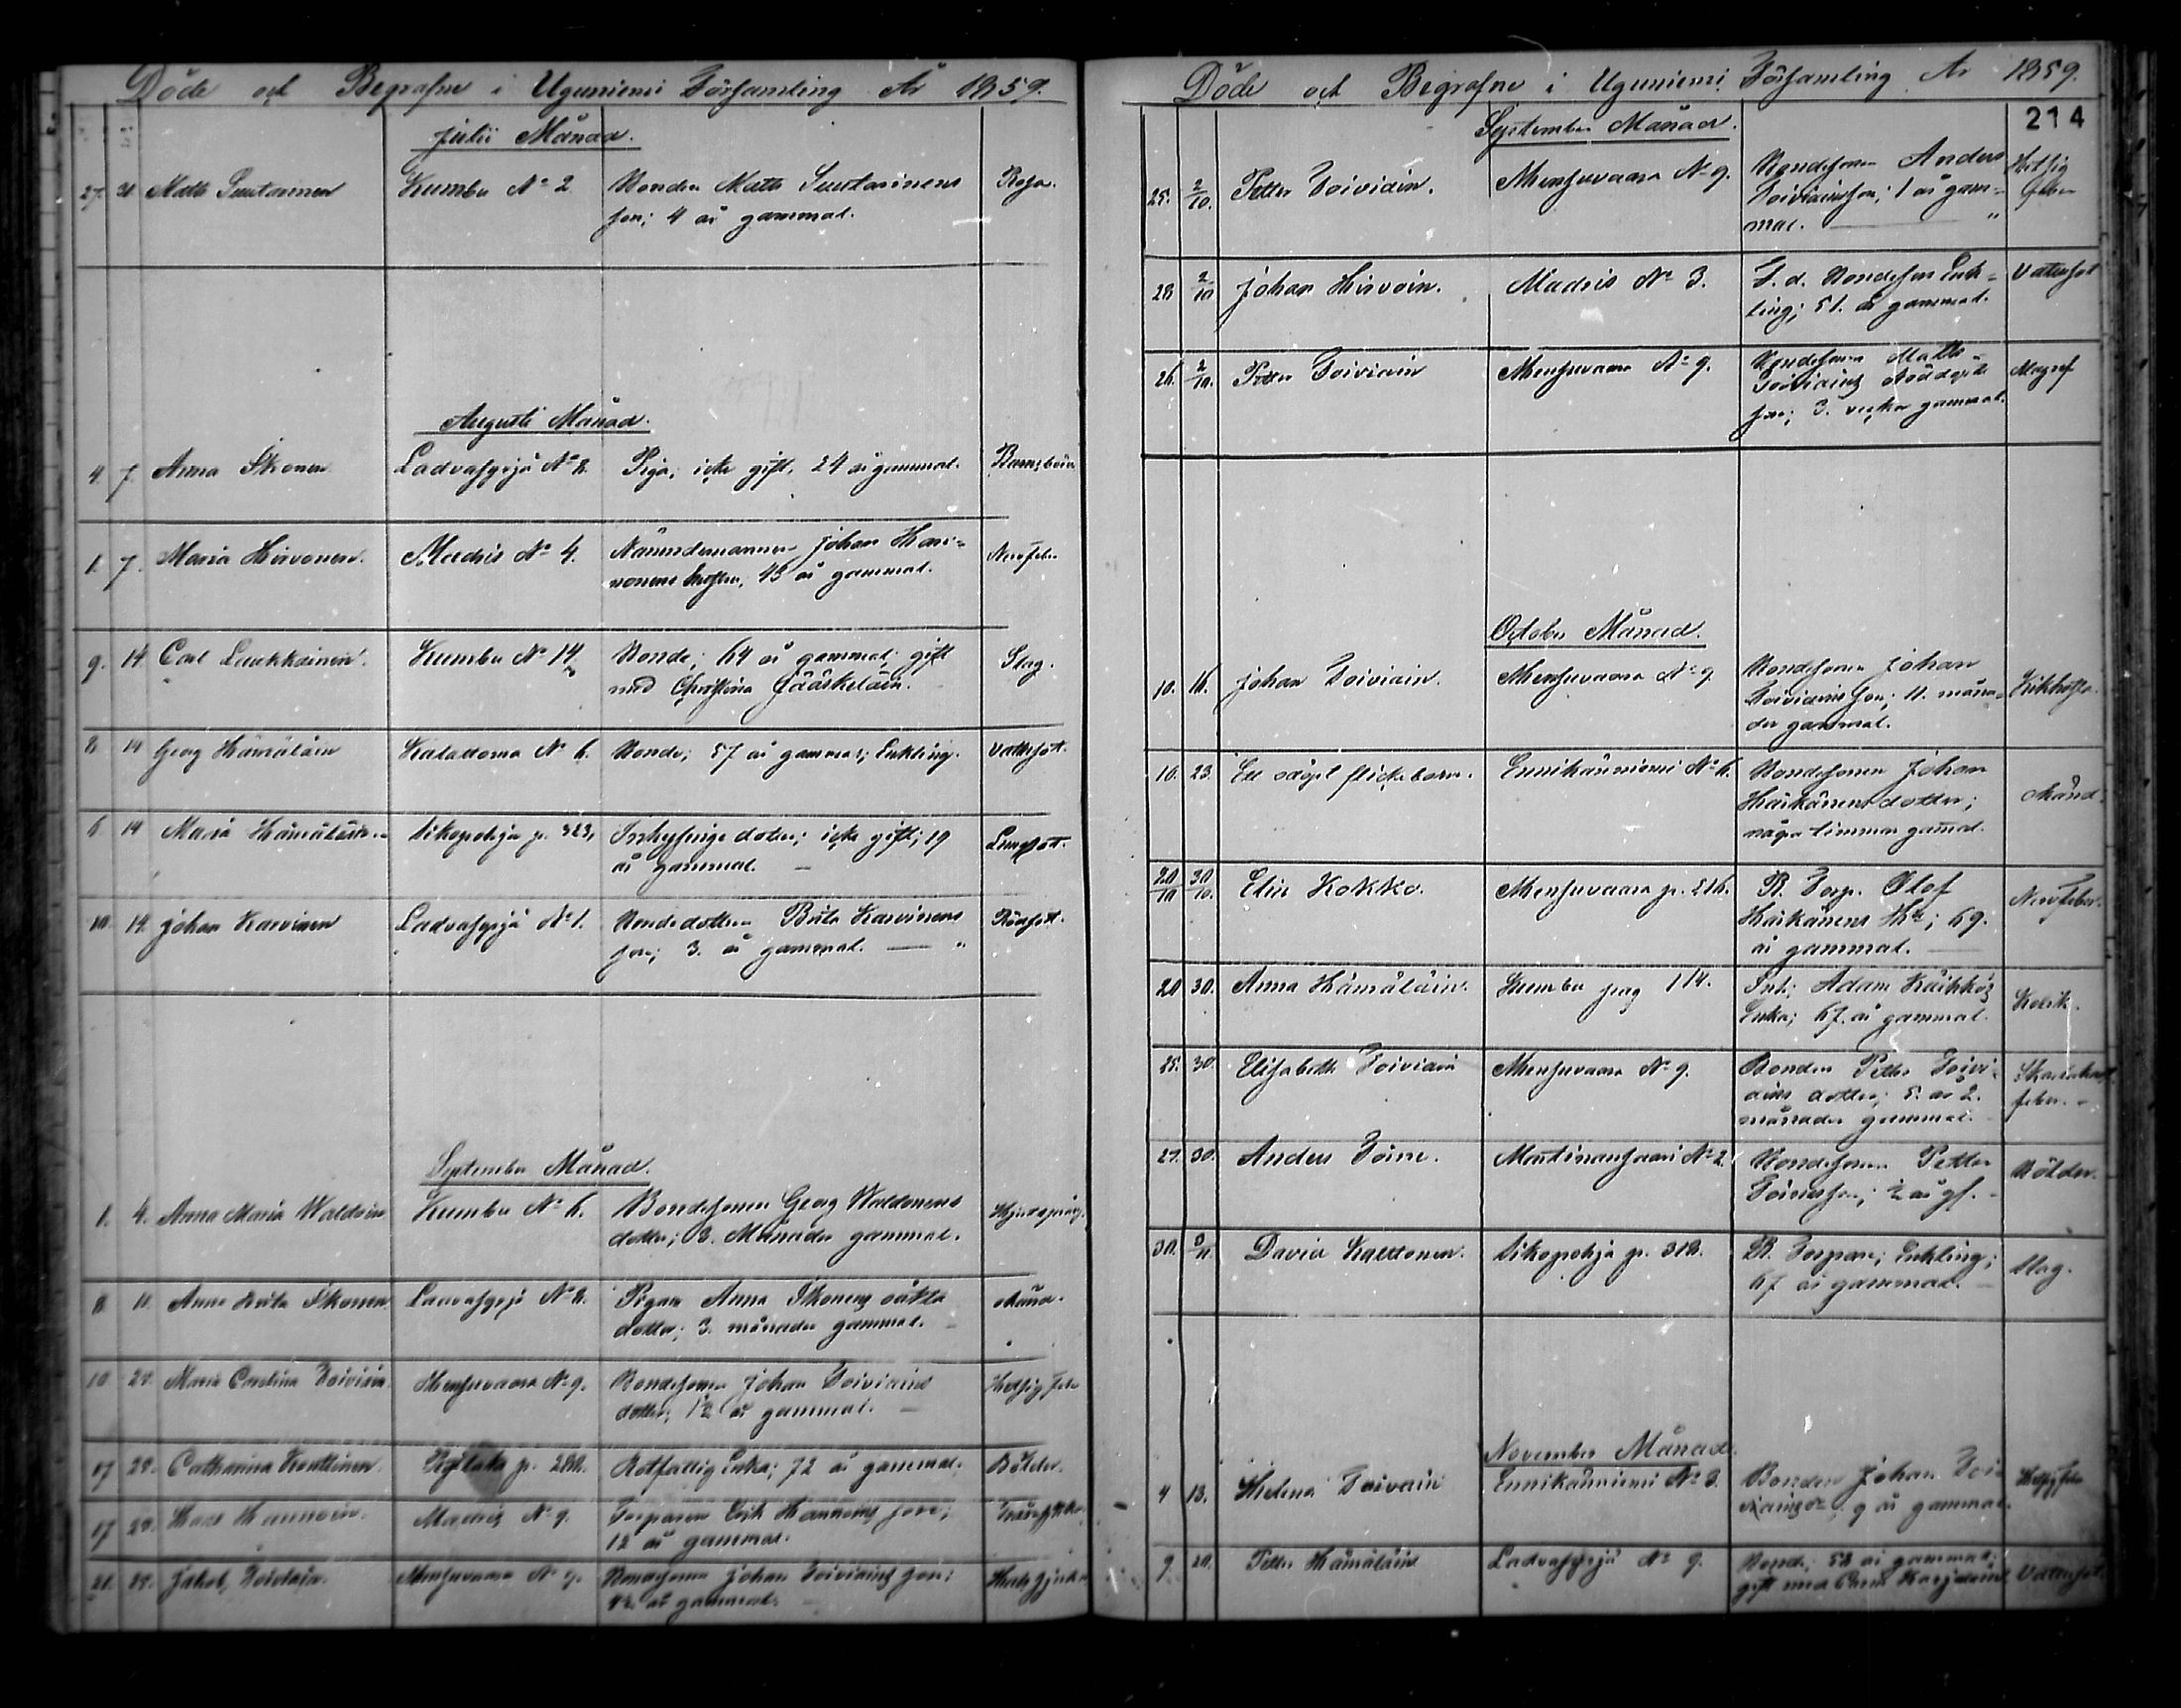 Döde och Begrafne i Uguniemi Församling År 1859.
Julii Månad.
27. 31 Matts Suutarinen Kumbu No 2 Bonden Matts Suutarinens
son; 4 år gammal.
Augusti Månad.
4. 7. Anna Ikonen Ladvasyrjä No 8. Piga, icke gift, 24 år gammal. Barnsbörd
1. 7. Maria Hirvonen. Madris No 4. Nämndemannen Johan
hustru, 43 år gammal. Nervfeber
9. 14. Carl Laukkainen. Kumbu No 14. Bonde; 64 år gammal; gift
med Christina Jääskeläin. Slag.
8. 14 Georg Hämäläin No 6. Bonde; 57 år gammal; Enkling. Vattusot.
6. 14 Maria Hämäläin Sikopohja p. 323, Inhysinge dotter; icke gift; 19
år gammal. — Lungsot.
10. 14. Johan Karvinen Ladvasyrjä No 1. Bondedottren Brita Karvinens
son; 3. år gammal. — " Rödsot.
September Månad.
1. 4. Anna Maria Waldoin Kumbu No 6. Bondesonen Georg Waldonens
dotter; 3. Månader gammal.
8. 11. Anna Brita Ikonen Ladvasyrjä No 8. Pigan Anna Ikonens oäkta
dotter; 3. månader gammal. — okänd.
10 Maria Carolina Toiviain Mensuvaara No 9. Bondesonen Johan Toiviains
dotter; 1½ år gammal. — Hetsig feber
17 Catharina p. 280. Rotfattig Enka; 72 år gammal. Bölder.
17 Madris No 9. Torparen Erik son;
12 år gammal.
21. Jakob Toiviain. Mensuvaara No 9. Bondesonen Johan Toiviains son;
år gammal.
Döde och Begrafne i Uguniemi Församling År 1859.
214
September Månad.
25. 2/10. Petter Toiviain. Mensuvaara No 9. Bondesonen Anders
Toiviains son; 1 år gam-
mal. — " Hetsig
feber
28 2/10 Johan Hirvoin. Madris No 3. F. d. Bondeson Enk-
ling; 51. år gammal. Vattusot
26. 2/10. Petter Toiviain Mensuvaara No 9. Bondesonen Matts
Toiviains
son; 3. veckor gammal. Magref
October Månad.
10. 16. Johan Toiviain. Mensuvaara No 9. Bondesonen Johan
Toiviains son; 11. måna-
der gammal. Kikhosta.
16. 23. Ett odöpt flickebarn. Ennikänniemi No 6. Bondesonen Johan
Häikänens dotter;
några timmar gamal. okänd.
20/10 30/10. Elin Kokko. Mensuvaara p. 216. R. Torp. Olof
Häikänens Hu; 69.
år gammal. — Nervfeber.
20 30. Anna Hämäläin. Kumbu pag 114. Inh: Adam
Enka; 67. år gammal. Kolik.
25. 30 Elisabeth Toiviain Mensuvaara No 9. Bonden Petter Toivi-
ains dotter; 5. år 2.
månader gammal. feber.
27. 30. Anders Toine. Martinansaari No 2. Bondesonen Petter
son; ½ år gl. Bölder.
30. David Sikopohja p. 318. R. Torpare; Enkling;
67 år gammal. — Slag.
November Månad.
4 13. Helena Toiviain Ennikänniemi No 3. Bonden Johan Toi-
viains dr. 9 år gammal. Hetsig feber
9. 20. Petter Hämäläin Ladvasyrjä No 9. Bonde; 58 år gammal;
gift med Karjalain Vattusot.